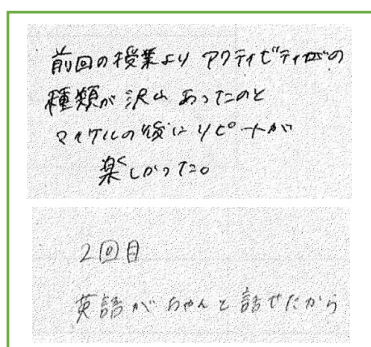 前回の授業より アクティビティの
種類が沢山あったのと
マイケルの後にリピートが
楽しかった。
2回目
英語がちゃんと話せたから